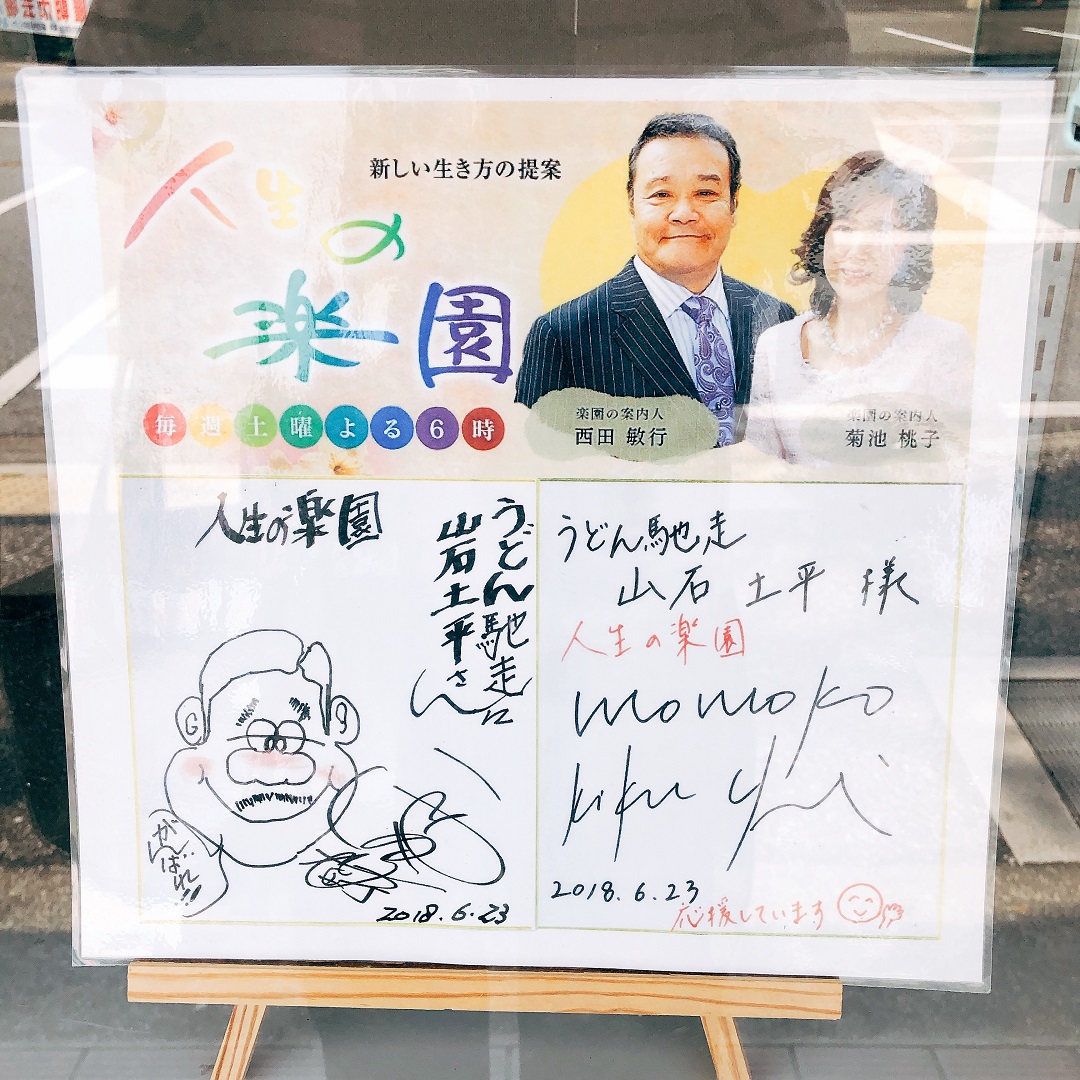 人生の楽園
新しい生き方の提案
毎週土曜よる6時
楽園の案内人
西田 敏行
楽園の案内人
菊池 桃子
人生の楽園
うどん馳走に
山石土平さん
がんばれ!!
2018.6.23
うどん馳走
山石 土平 様
人生の楽園
momoko
kikuchi
2018.6.23
応援しています